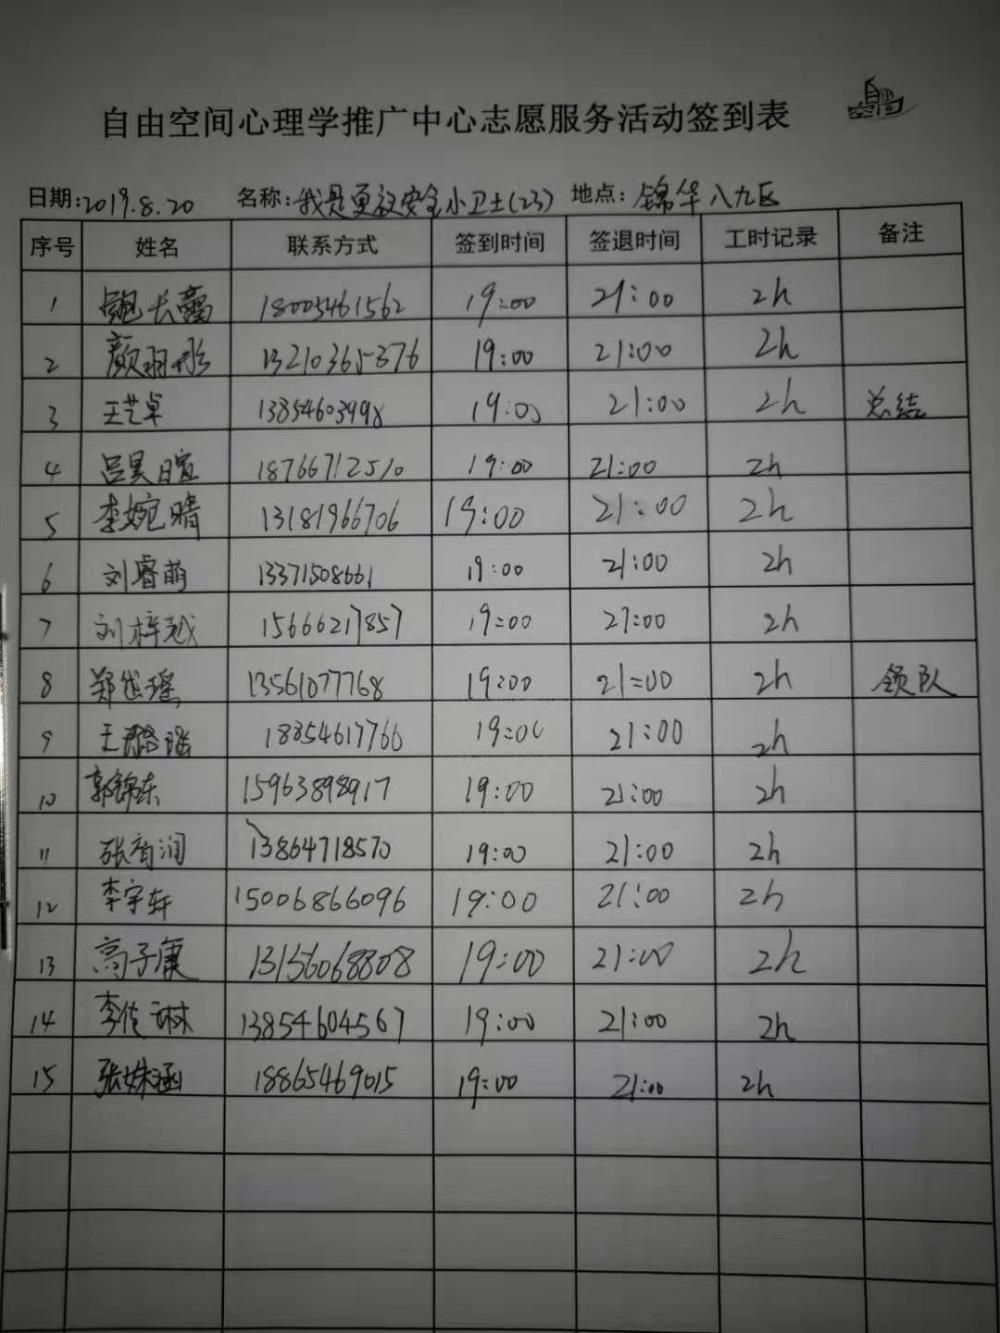 自由空间心理学推广中心志愿服务活动签到表
日期:2019.8.20 名称:我是夏夜安全小卫士(23) 地点:锦华八九区
序号 姓名 联系方式 签到时间 签退时间 工时记录 备注
1 鲍长蕾 18005461562 19:00 21:00 2h
2 颜羽彤 13210365376 19:00 21:00 2h
3 王艺卓 13854603998 19:00 21:00 2h 总结
4 吕昊暄 18766712510 19:00 21:00 2h
5 李婉晴 13181966706 19:00 21:00 2h
6 刘睿萌 13371508661 19:00 21:00 2h
7 刘梓越 15666217857 19:00 21:00 2h
8 郑岱瑶 13561077768 19:00 21:00 2h 领队
9 王璐瑶 18854617766 19:00 21:00 2h
10 郭锦东 15963898917 19:00 21:00 2h
11 张有润 13864718570 19:00 21:00 2h
12 李宇轩 15006866096 19:00 21:00 2h
13 高子康 13156068808 19:00 21:00 2h
14 李佳琳 13854604567 19:00 21:00 2h
15 张姝涵 18865469015 19:00 21:00 2h